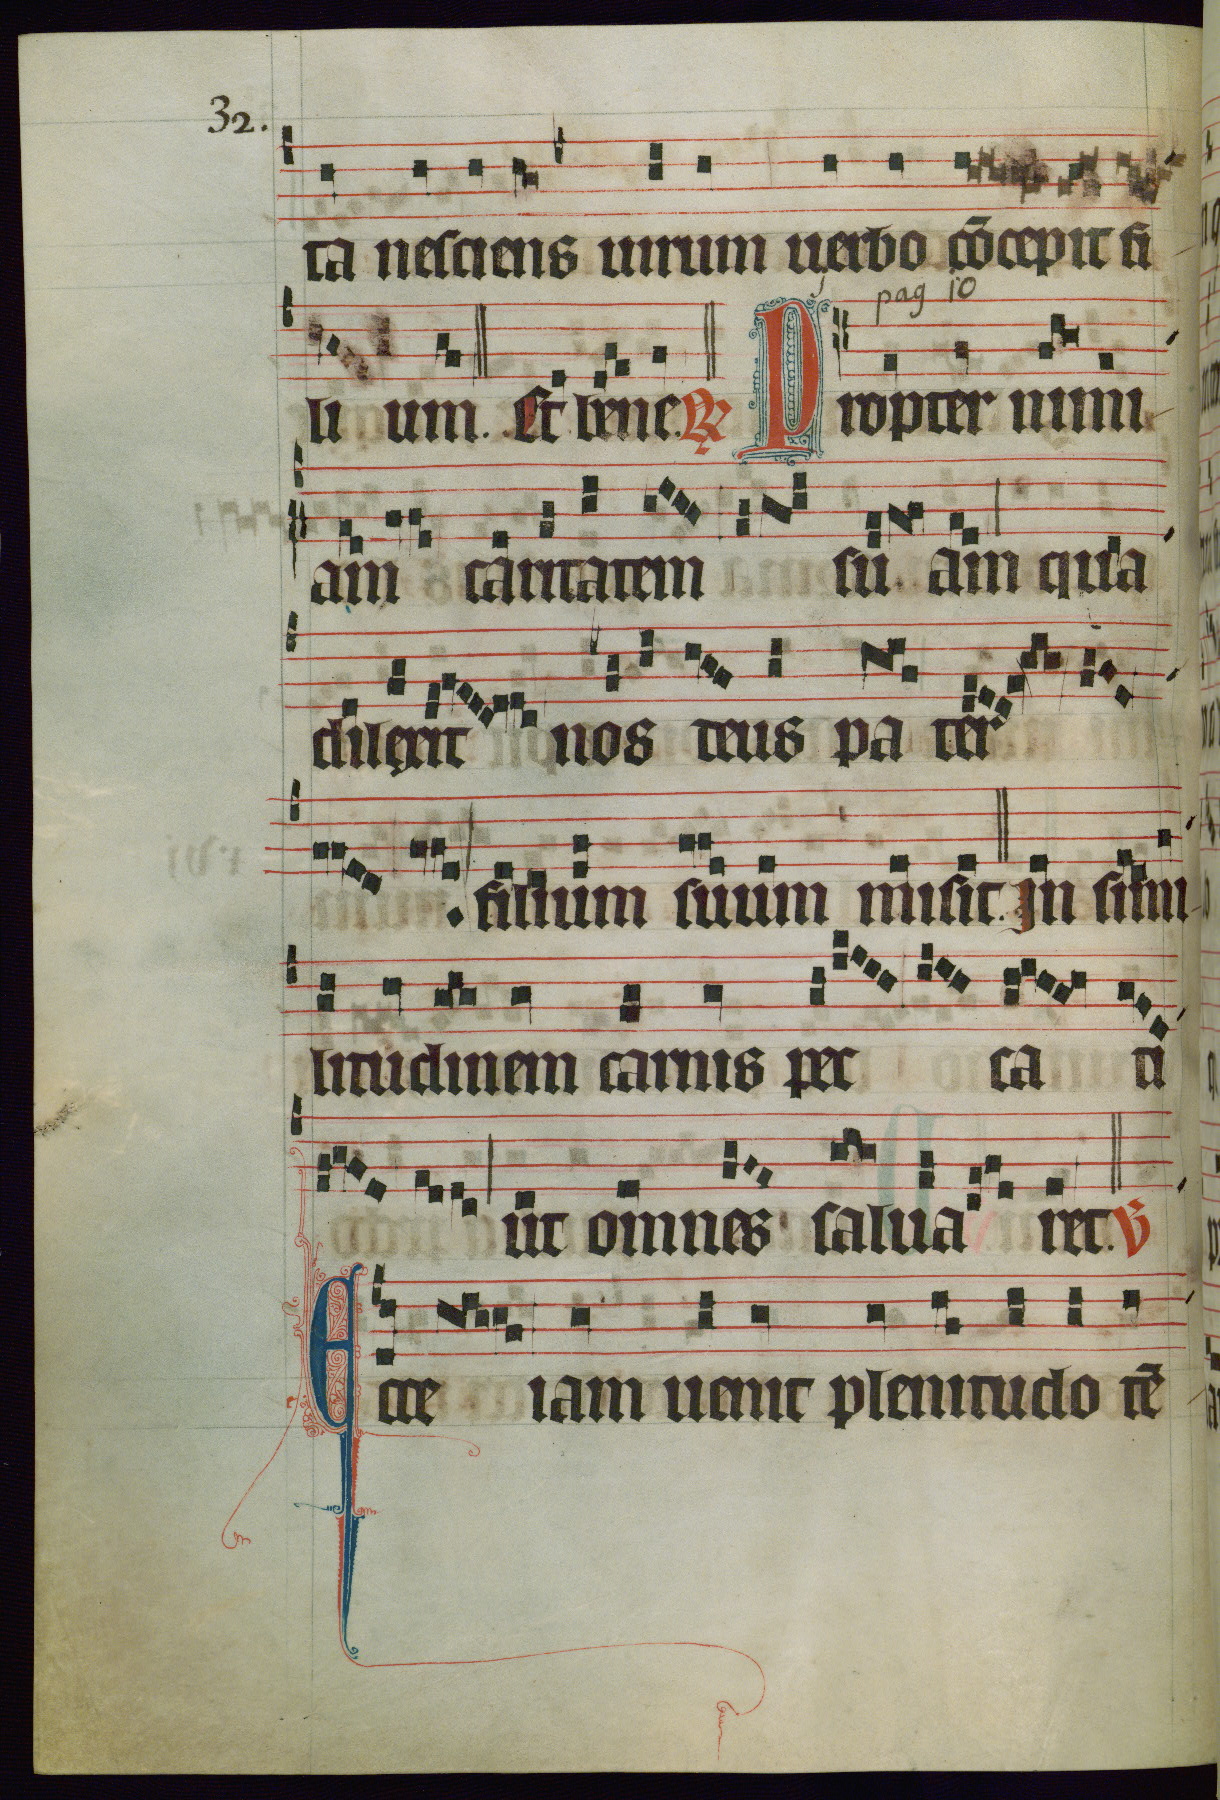 32.
ta nesciens uirum uerbo cōcepit fi
pag 10
li um. Et bene. R Propter nimi
am caritatem su am qua
dilexit nos deus pa ter
filium suum misit. In simi
litudinem carnis pec ca ti
ut omnes salua ret. V
Ecce iam uenit plenitudo tē